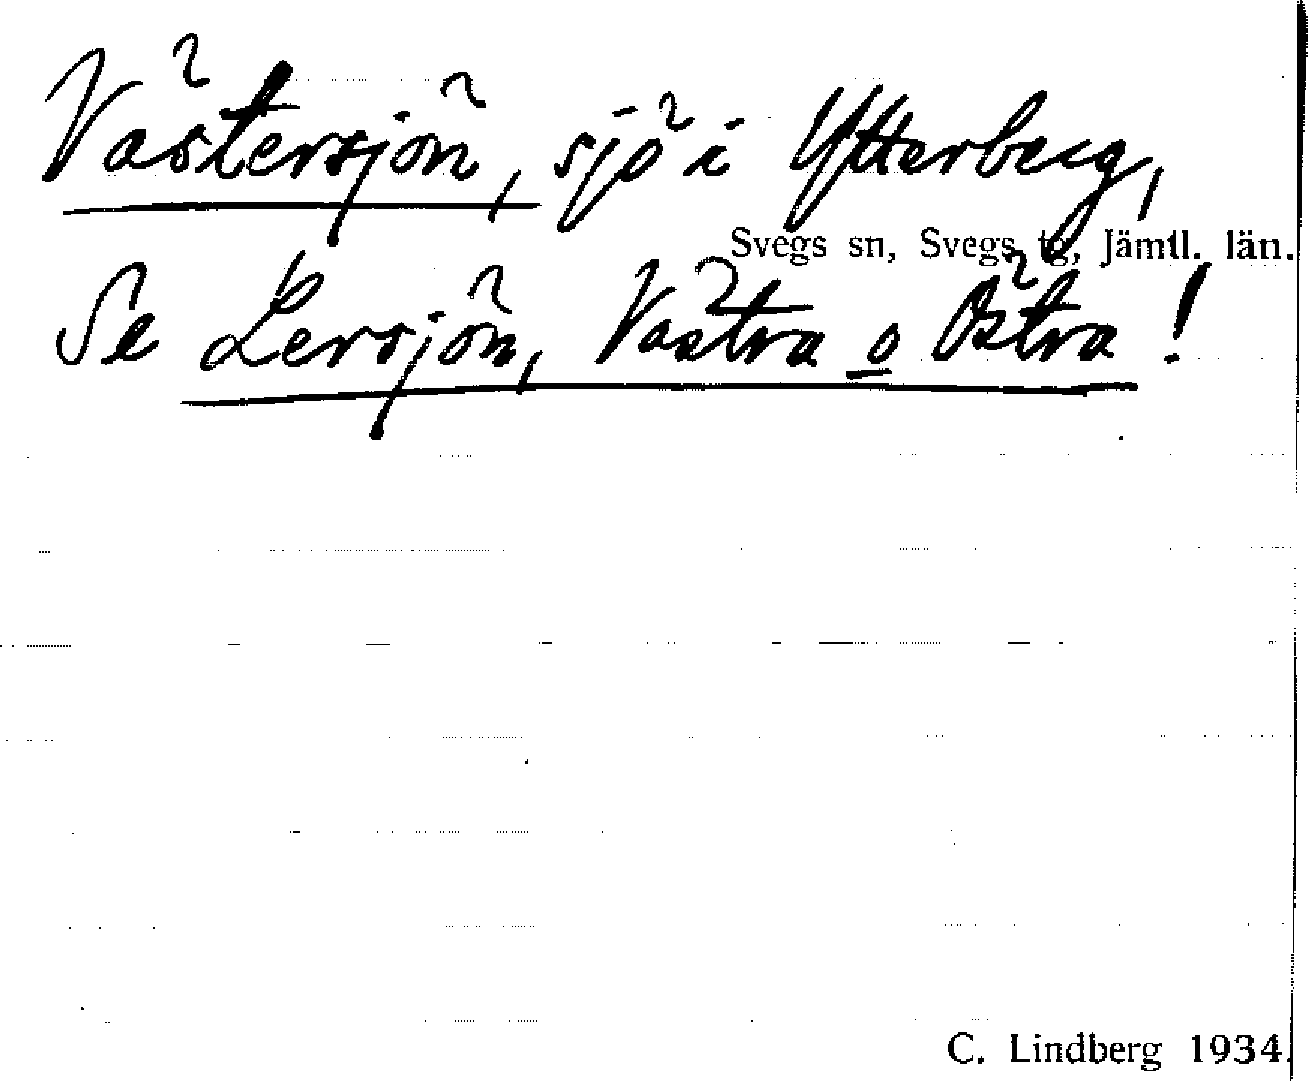 Västersjön, sjö i Ytterberg,
Svegs sn, Svegs tg, Jämtl. län.
Se Lersjön, Västra o Östra!
C. Lindberg 1934.